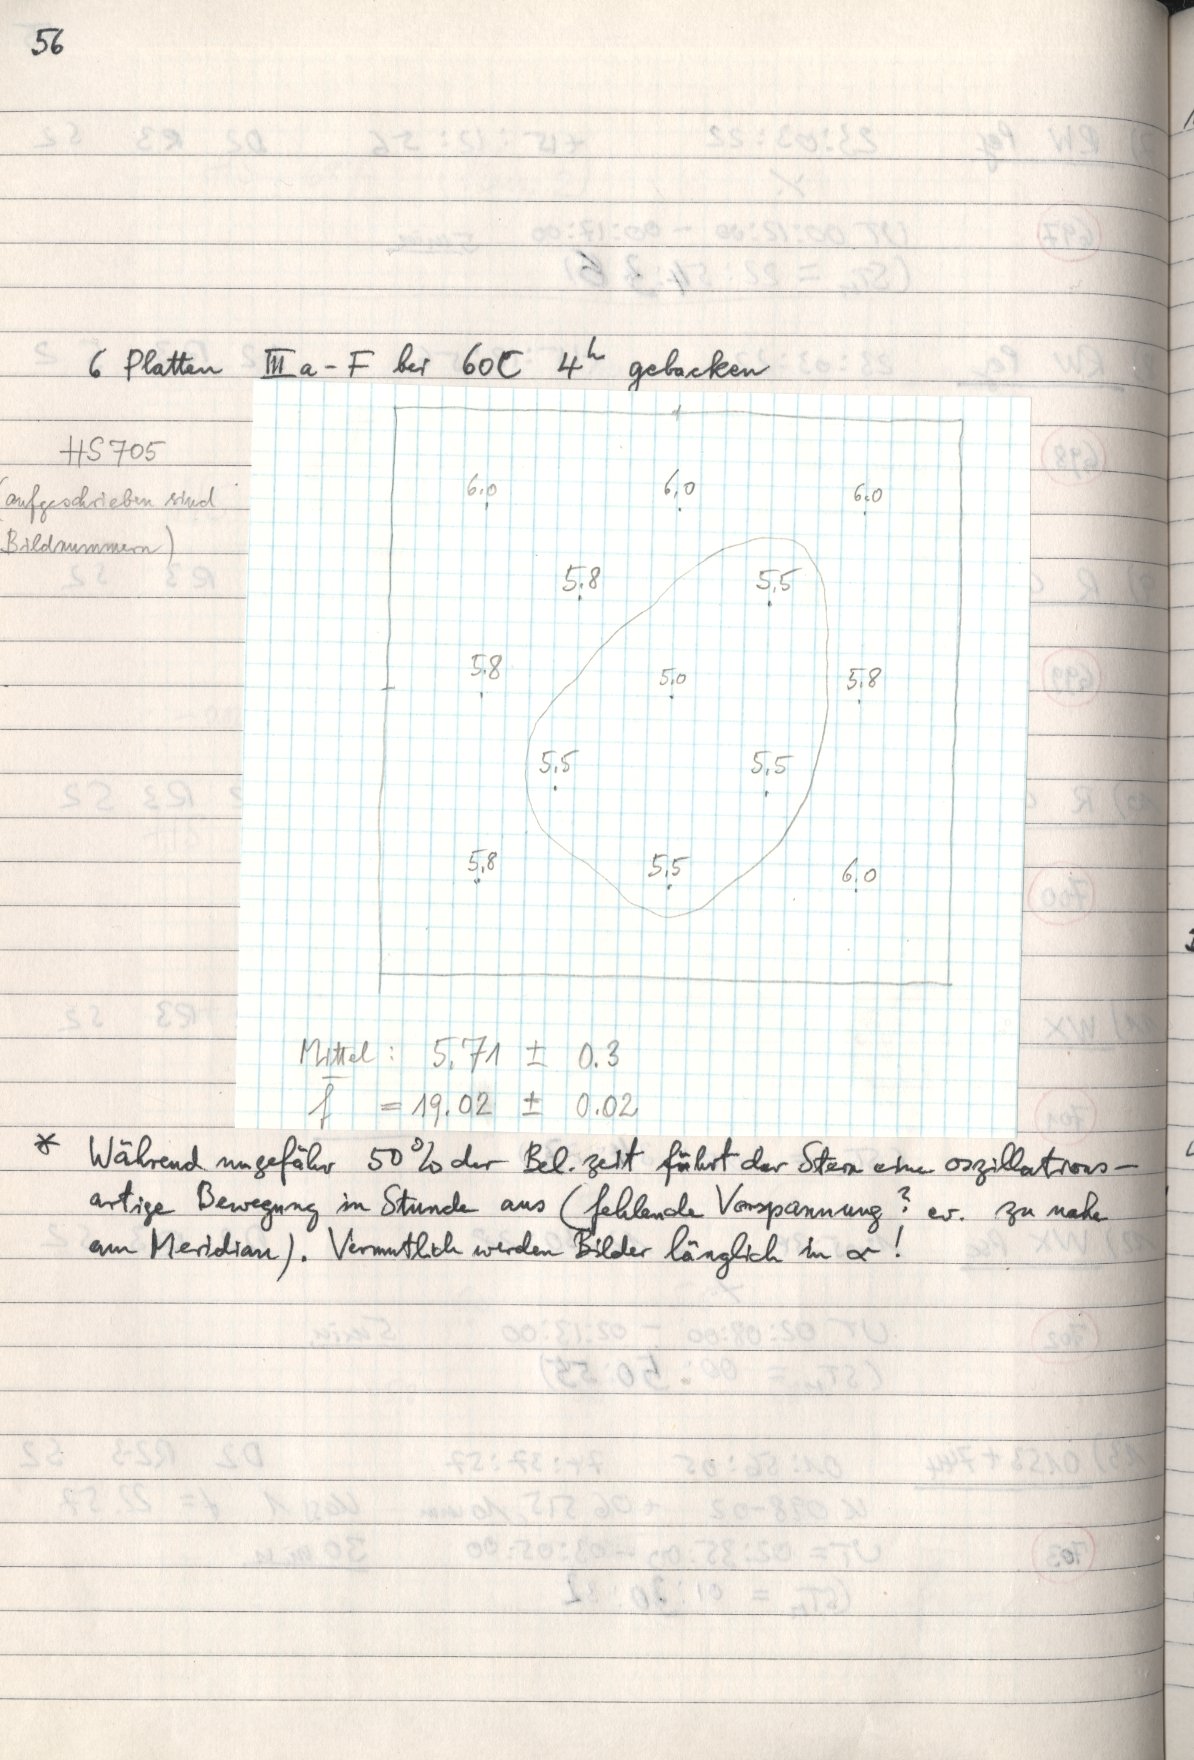 56
6 Platten IIIa-F bei 60C 4h gebacken
HS705
(aufgeschrieben sind
Bildnummern)
6.0 6.0 6.0
5.8 5.5
5.8 5.0 5.8
5.5 5.5
5.8 5.5 6.0
Mittel: 5.71 ± 0.3
f = 19.02 ± 0.02
* Während ungefähr 50% der Bel.zeit führt der Stern eine oszillations-
artige Bewegung in Stunde aus (fehlende Vorspannung? ev. zu nahe
am Meridian). Vermutlich werden Bilder länglich in α!